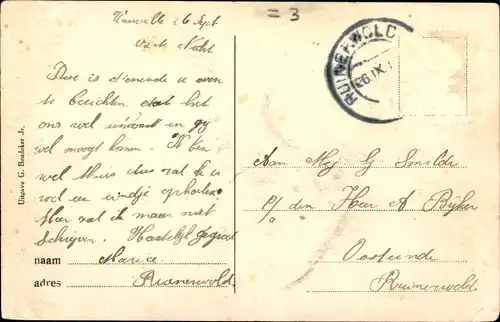 = 3
26 Sept
Deze is dienende u even
te berichten dat het
ons wel en gy
wel moogt komen. Ik ben
wel thuis dus zal ik u
wel een eindje ophalen.
zal ik maar niet
Schrijven. Hartelijk gegroet
naam Maria
adres Ruinerwold
Uitgave G. Broekker Jr.
RUINERWOLD
26.IX
Aan Mej G Smilde
p/a den Heer A Bijker
Oosteinde
Ruinerwold